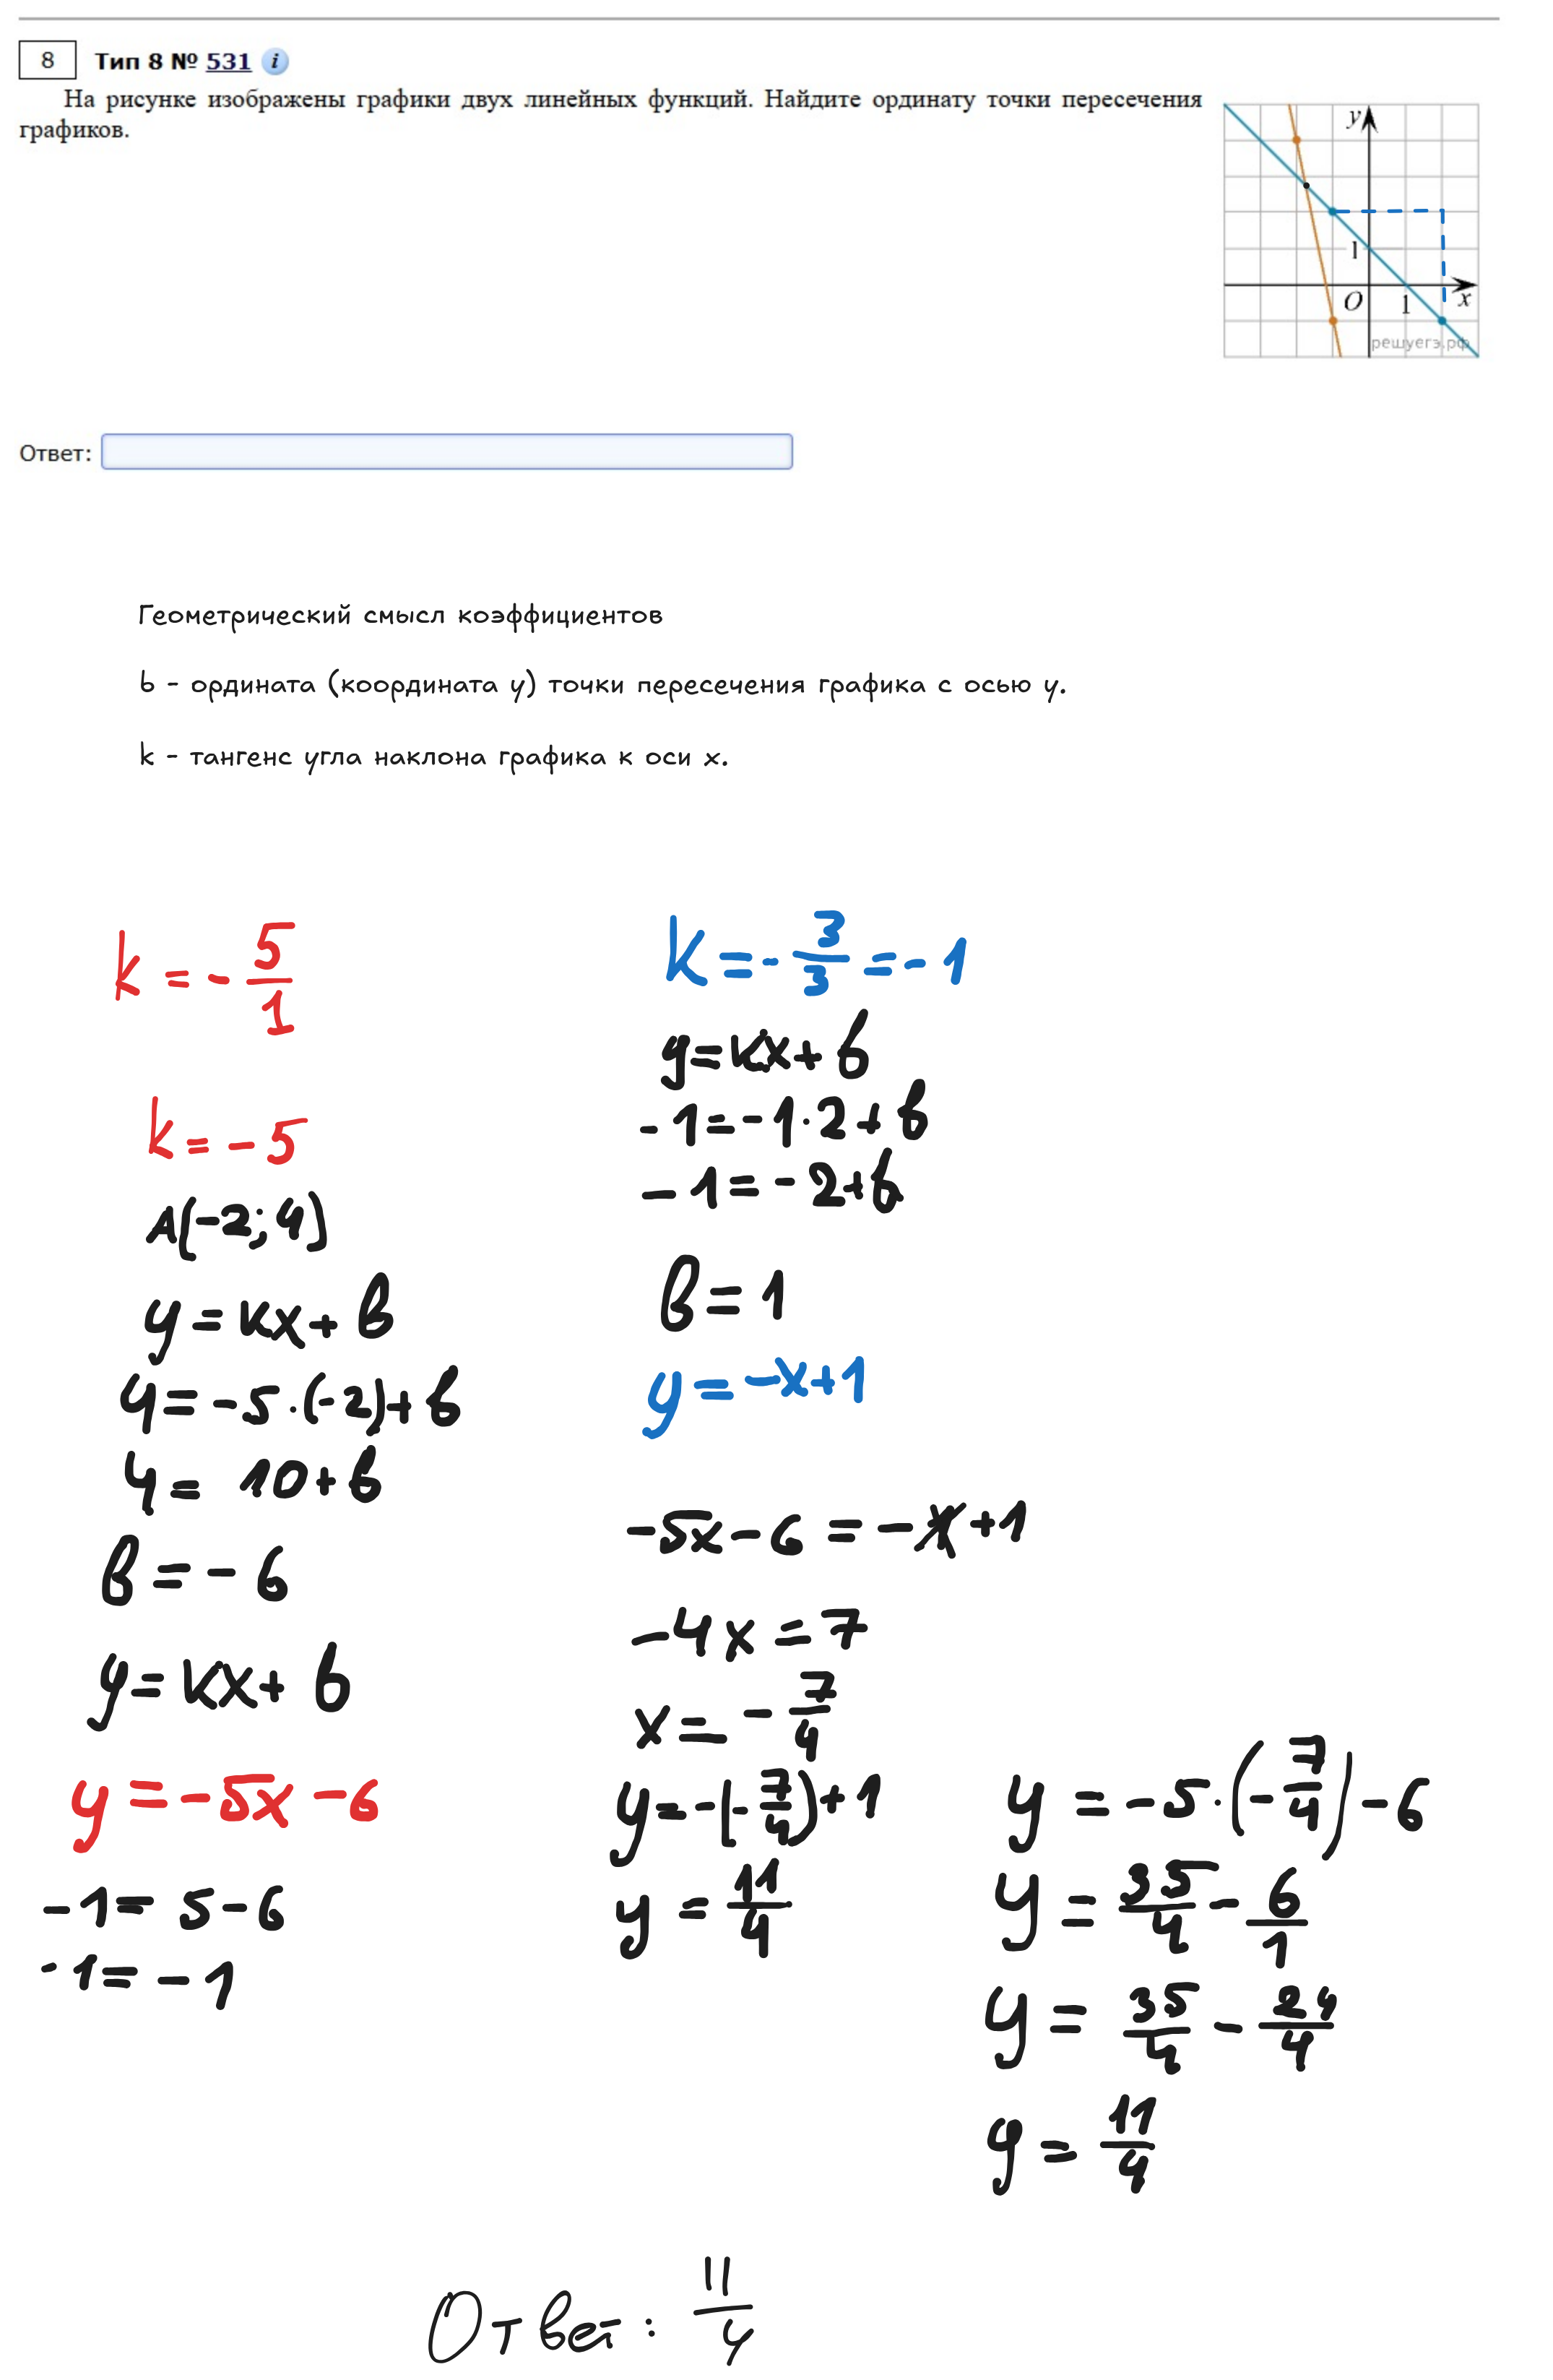 8 Тип 8 № 531 i
На рисунке изображены графики двух линейных функций. Найдите ординату точки пересечения
графиков.
y
1
O 1 x
решуегэ.рф
Ответ:
Геометрический смысл коэффициентов
b - ордината (координата y) точки пересечения графика с осью y.
k - тангенс угла наклона графика к оси x.
k = - 5/1
k = - 5
A(-2; 4)
y = kx + b
4 = -5 · (-2) + b
4 = 10 + b
b = - 6
y = kx + b
y = -5x - 6
-1 = 5 - 6
-1 = -1
k = - 3/3 = - 1
y = kx + b
-1 = -1 · 2 + b
-1 = -2 + b
b = 1
y = -x + 1
-5x - 6 = -x + 1
-4x = 7
x = - 7/4
y = -(-7/4) + 1
y = 11/4
y = -5 · (-7/4) - 6
y = 35/4 - 6/1
y = 35/4 - 24/4
y = 11/4
Ответ: 11/4